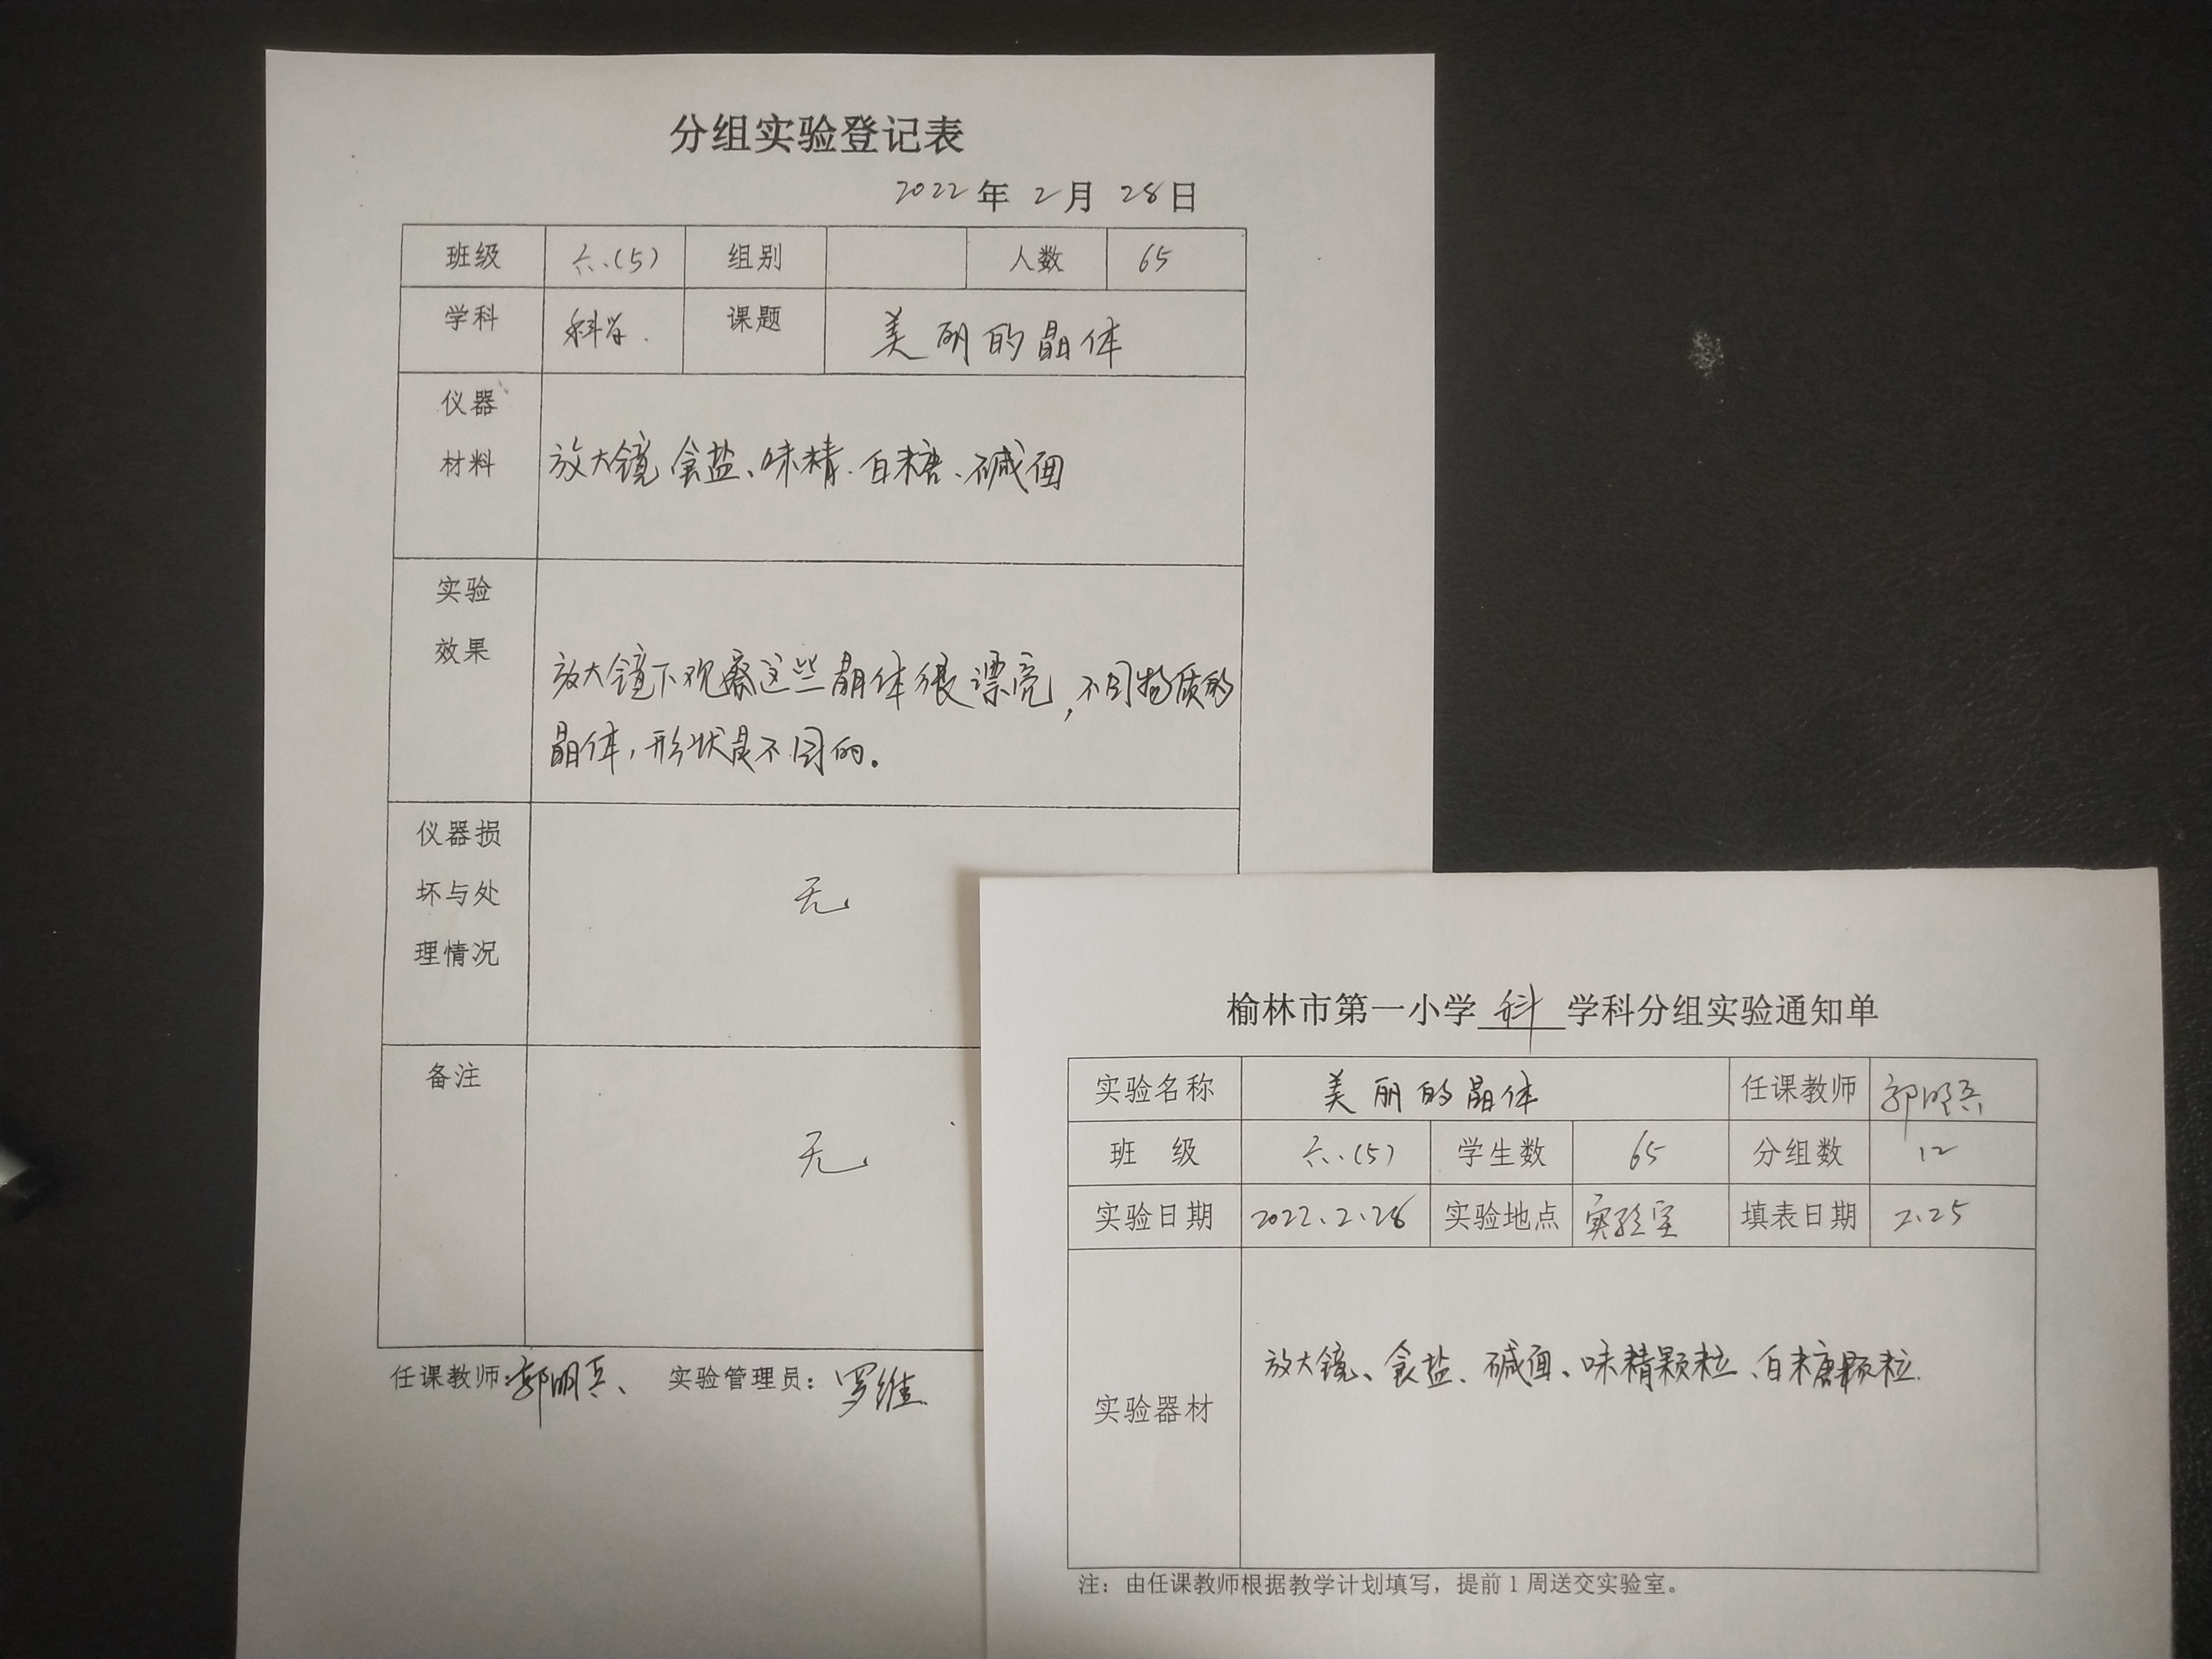 分组实验登记表
2022年 2月 28日
班级 六(5) 组别 人数 65
学科 科学. 课题 美丽的晶体
仪器
材料 放大镜 食盐、味精.白糖、碱面
实验
效果
放大镜下观察这些晶体很漂亮,不同物质的
晶体,形状是不同的。
仪器损
坏与处 无
理情况
备注
无
任课教师: 郭明兵、 实验管理员: 罗维
榆林市第一小学 科 学科分组实验通知单
实验名称 美丽的晶体 任课教师 郭明兵
班 级 六.(5) 学生数 65 分组数 12
实验日期 2022、2、28 实验地点 实验室 填表日期 2、25
放大镜、食盐、碱面、味精颗粒、白糖颗粒.
实验器材
注：由任课教师根据教学计划填写，提前1周送交实验室。